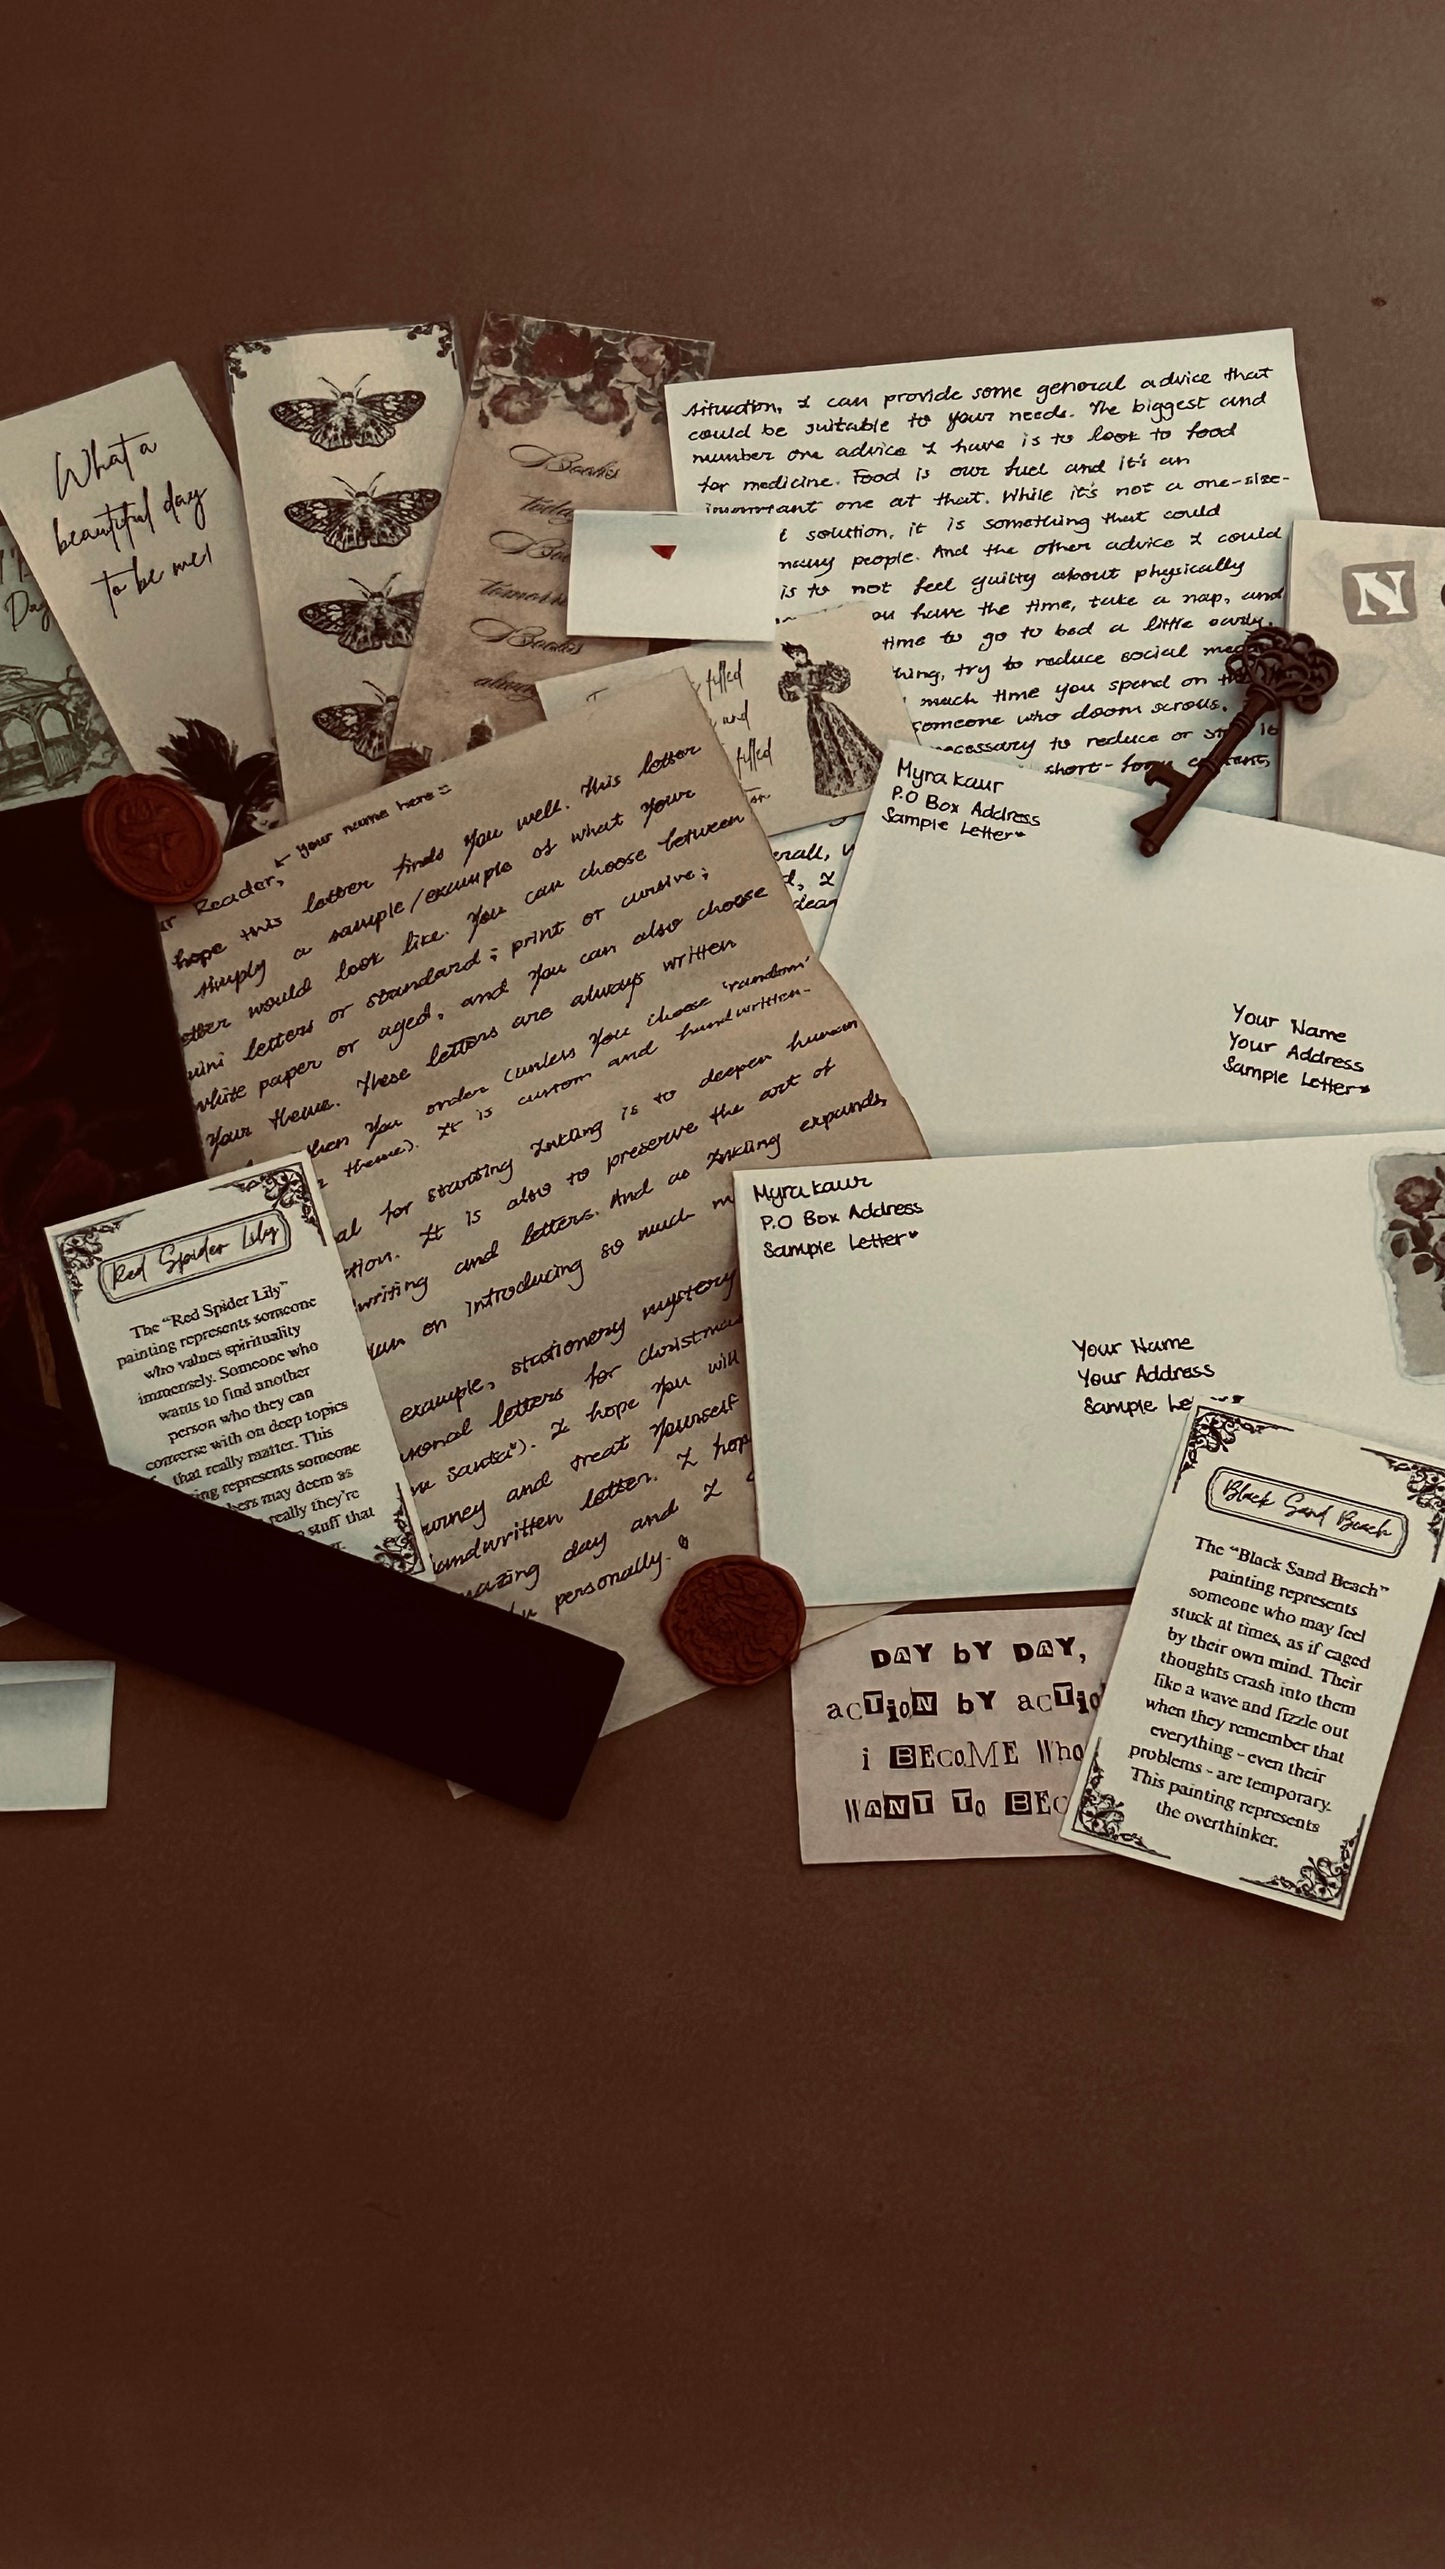 What a
beautiful day
to be me!
Day
Books
today
Books
always
situation, I can provide some general advice that
could be suitable to your needs. The biggest and
number one advice I have is to look to food
for medicine. Food is our fuel and it's an
important one at that. While it's not a one-size-
solution, it is something that could
many people. And the other advice I could
is to not feel guilty about physically
you have the time, take a nap, and
time to go to bed a little early.
thing, try to reduce social
much time you spend on
someone who doom scrolls,
necessary to reduce or
short-form content,
N
filled
and
filled
Myra Kaur
P.O Box Address
Sample Letter
Your Name
Your Address
Sample Letter
← Your name here
Reader,
hope this letter finds you well. This letter
simply a sample/example of what your
letter would look like. You can choose between
mini letters or standard; print or cursive;
white paper or aged, and you can also choose
your theme. These letters are always written
when you order (unless you choose 'random'
theme). It is custom and handwritten.
for starting Inkling is to deepen human
It is also to preserve the art of
writing and letters. And as Inkling expands,
on introducing so much
example, stationery mystery
letters for Christmas
santa"). I hope you will
and treat yourself
handwritten letter. I hope
amazing day and I
personally.
Myra Kaur
P.O Box Address
Sample Letter
Your Name
Your Address
Sample
Red Spider Lily
The "Red Spider Lily"
painting represents someone
who values spirituality
immensely. Someone who
wants to find another
person who they can
converse with on deep topics
that really matter. This
represents someone
may deem as
really they're
stuff that
Black Sand Beach
The "Black Sand Beach"
painting represents
someone who may feel
stuck at times, as if caged
by their own mind. Their
thoughts crash into them
like a wave and fizzle out
when they remember that
everything - even their
problems - are temporary.
This painting represents
the overthinker.
DAY bY DAY,
acTioN bY acTio
i BECoME Who
WANT To BEC